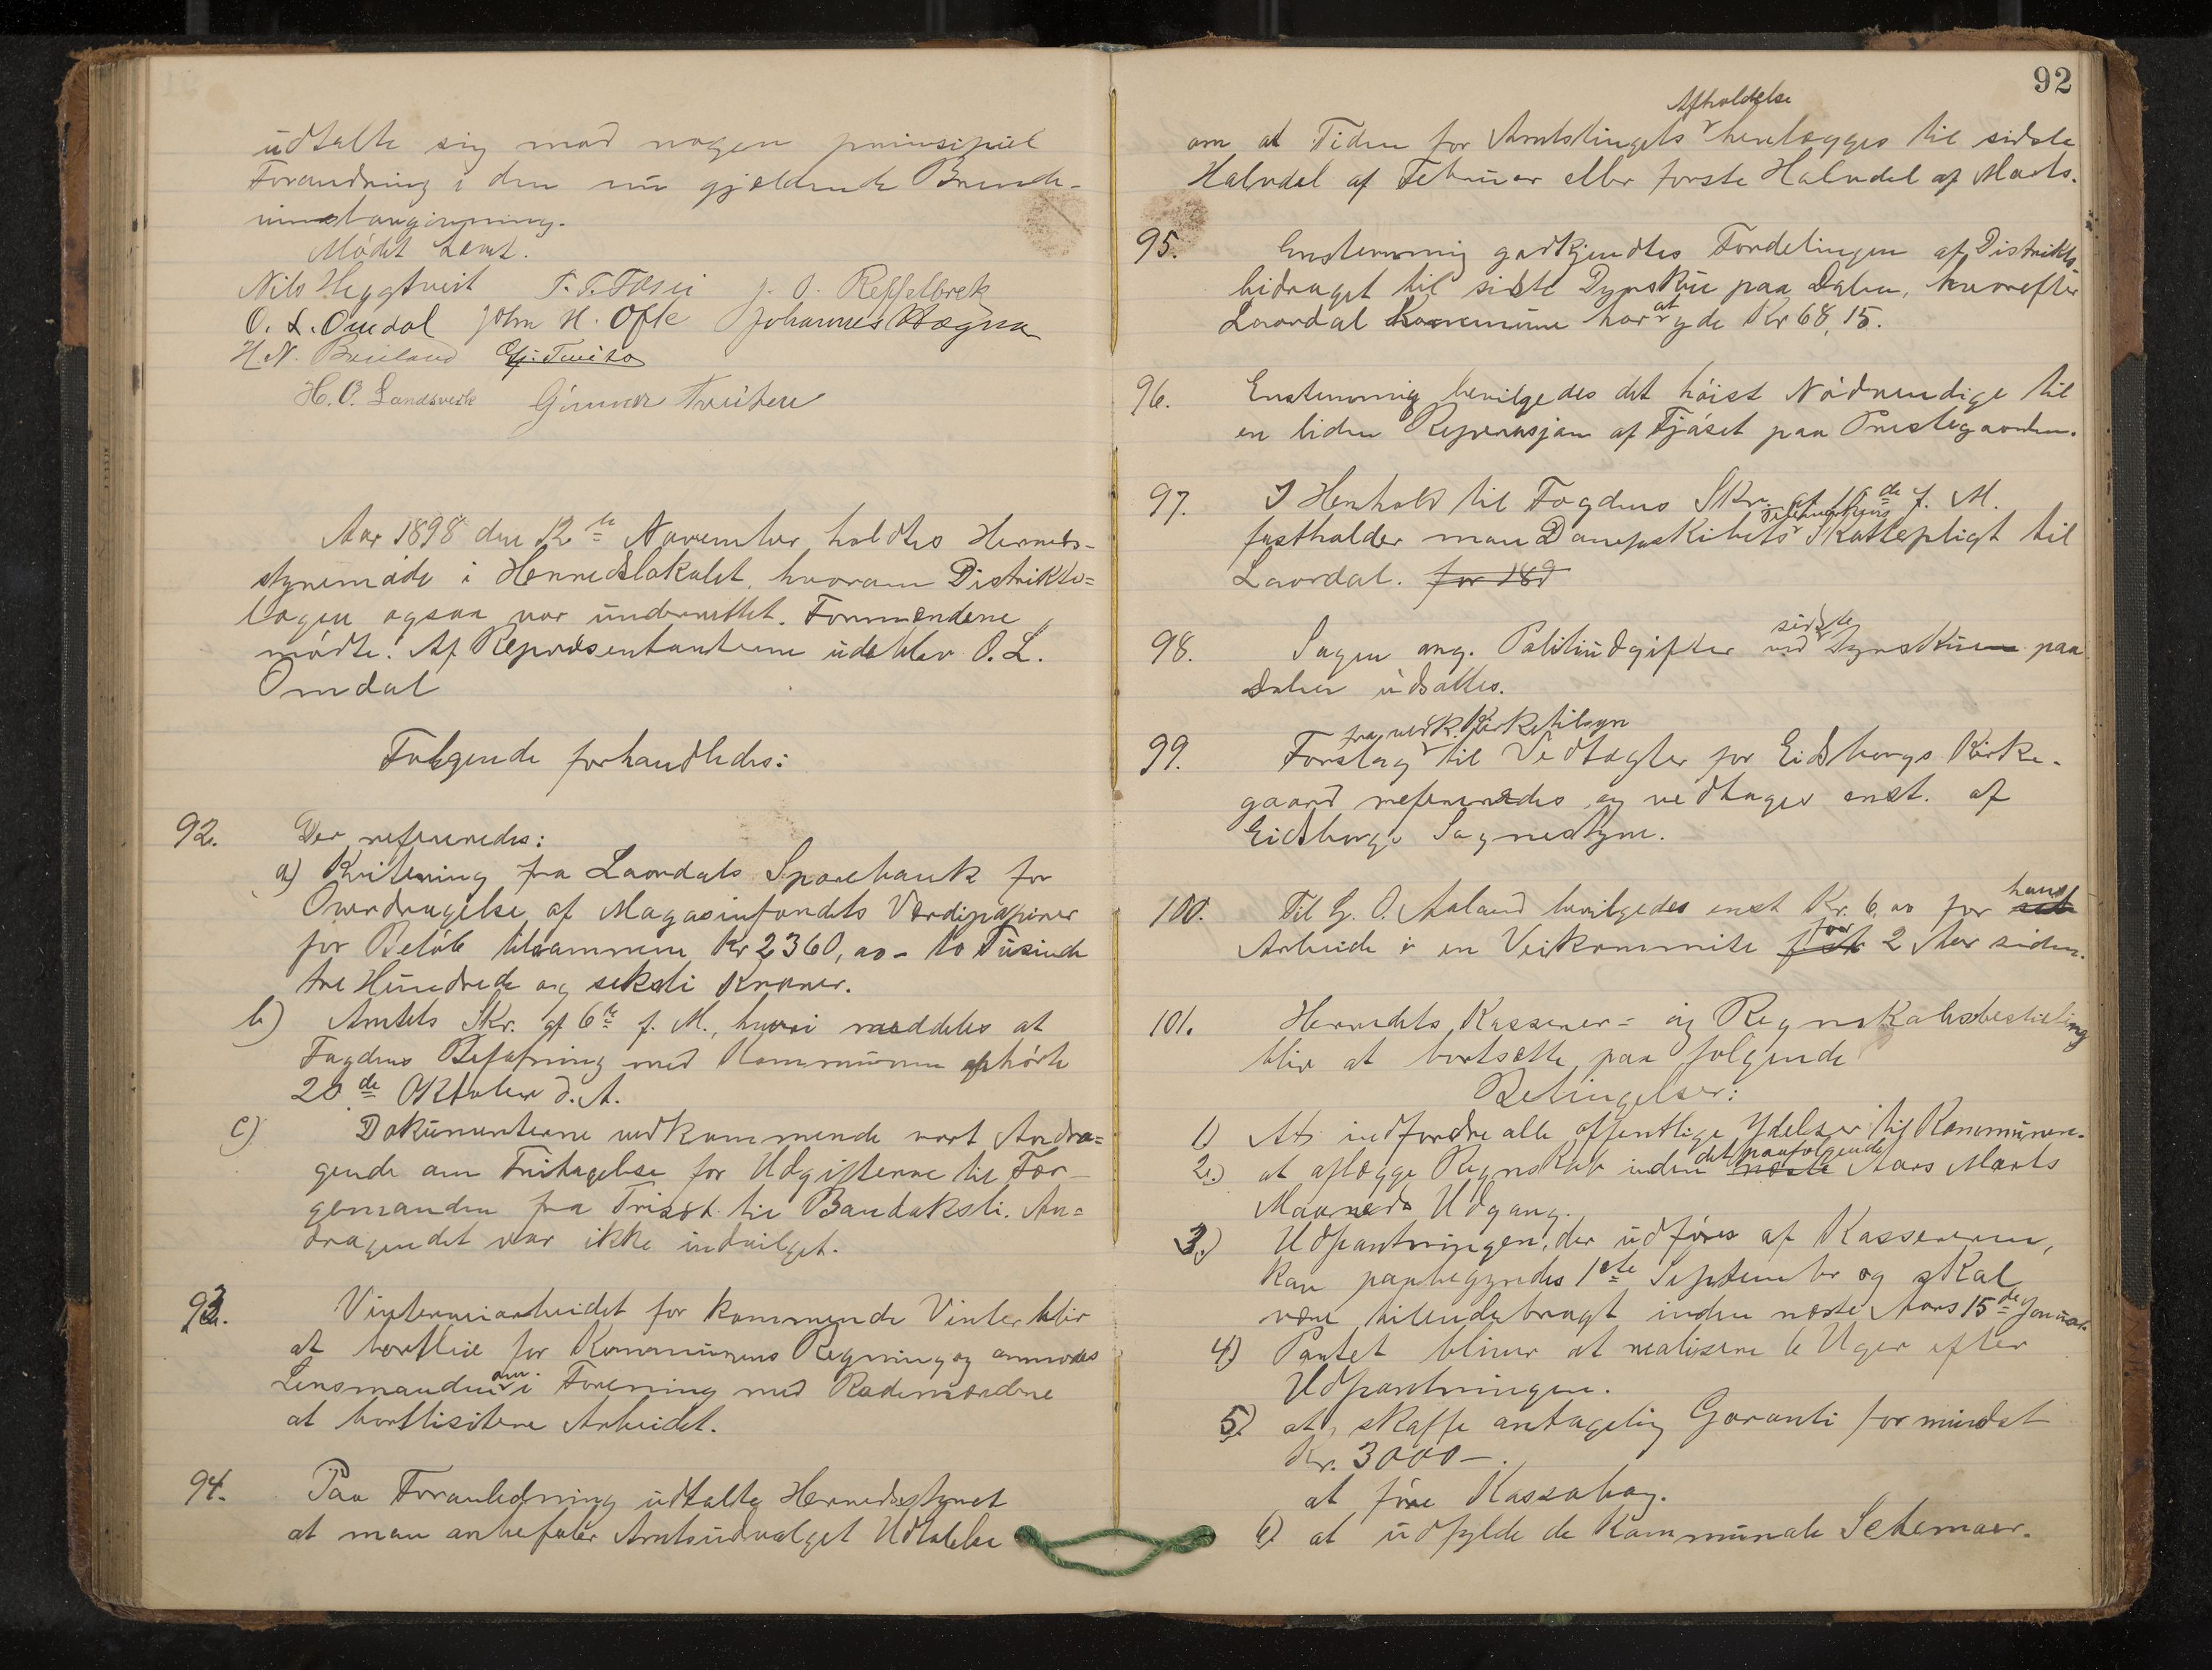 udtalte sig mod nogen prinsipiel
Forandring i den nu gjeldende Brænde-
vinslovgivning.
Mødet hævet.
Nils Heggtveit T. T. Fosei J. O. Reffelbrek
O. L. Omdal John H. Ofte Johannes Høgna
H. N. Beiland
H. O. Landsverk Gunnar Tveiten
Aar 1898 den 12te November holdtes Herreds-
styremøde i Herredslokalet, hvorom Distrikts=
lægen ogsaa var underrettet. Formændene
mødte. Af Repræsentanterne udeblev O. L.
Omdal
Følgende forhandledes:
92. Der refereredes:
a) Kvitering fra Laardals Sparebank for
Overdragelse af Magasinfondets Værdipapirer
for Beløb tilsammen Kr 2360,00 - to Tusinde
tre Hundrede og seksti Kroner.
b) Amtets Skr. af 6te f. M., hvori meddeles at
Fogdens Befatning med Kommunen ophørte
20de Oktober d. A.
c) Dokumenterne vedkommende vort Andra=
gende om Fritagelse for Udgifterne til Fær-
gemanden fra Trisæt til Bandaksli. An=
dragendet var ikke indvilget.
93. Vinterveiarbeidet for kommende Vinter blir
at bortlie for Kommunens Regning og anmodes
Lensmanden om i Forening med Rodemændene
at bortlisitere Arbeidet.
94. Paa Foranledning udtalte Herredsstyret
at man anbefaler Amtsudvalget Udtalelse
92
om at Tiden for Amtstingets Afholdelse henlægges til sidste
Halvdel af Februar eller første Halvdel af Marts.
95. Enstemmig godkjendtes Fordelingen af Distrikts-
bidraget til siste Dyrsku paa Dalen, hvorefter
Laardal Kommune har at yde Kr 68,15.
96. Enstemmig bevilgedes det høist Nødvendige til
en liden Reperasjon af Fjøset paa Prestegaarden.
97. I Henhold til Fogdens Skr. af 19de f. M.
fastholder man Dampskibets Telemarkens Skattepligt til
Laardal. for 189
98. Sagen ang. Politiudgifter ved sidste Dyrskuen paa
Dalen udsattes.
99. Forslag fra vedk. Kirketilsyn til Vedtægter for Eidsborgs Kirke-
gaard refereredes og vedtages enst. af
Eidsborgs Sognestyre.
100. Til G. O. Aaland bevilgedes enst Kr. 6,00 for hans
Arbeide i en Veikommite for 2 Aar siden.
101. Herredets Kasserer= og Regnskabsbestilling
blir at bortsætte paa følgende
Betingelser:
1) At indfordre alle offentlige Ydelser til Kommunen.
2.) at aflægge Regnskab inden det paafølgende næste Aars Marts
Maaneds Udgang.
3.) Udpantningen, der udføres af Kassereren,
kan paabegyndes 1ste September og skal
være tilendebragt inden næste Aars 15de Januar.
4) Pantet bliver at realisere 6 Uger efter
Udpantningen.
5) at skaffe antagelig Garanti for mindst
Kr. 3000 -.
at føre Kassabog.
6) at udfylde de Kommunale Schemaer.